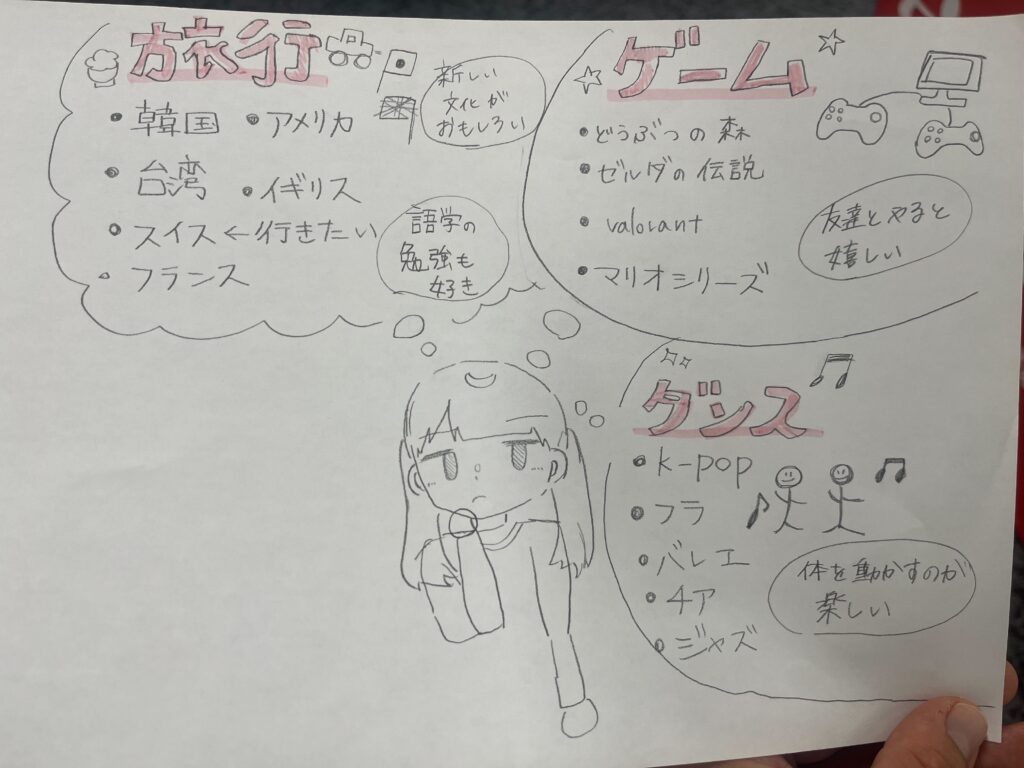 旅行
・韓国 ・アメリカ
・台湾 ・イギリス
・スイス←行きたい
・フランス
新しい
文化が
おもしろい
語学の
勉強も
好き
ゲーム
・どうぶつの森
・ゼルダの伝説
・valorant
・マリオシリーズ
友達とやると
嬉しい
ダンス
・K-POP
・フラ
・バレエ
・チア
・ジャズ
体を動かすのが
楽しい